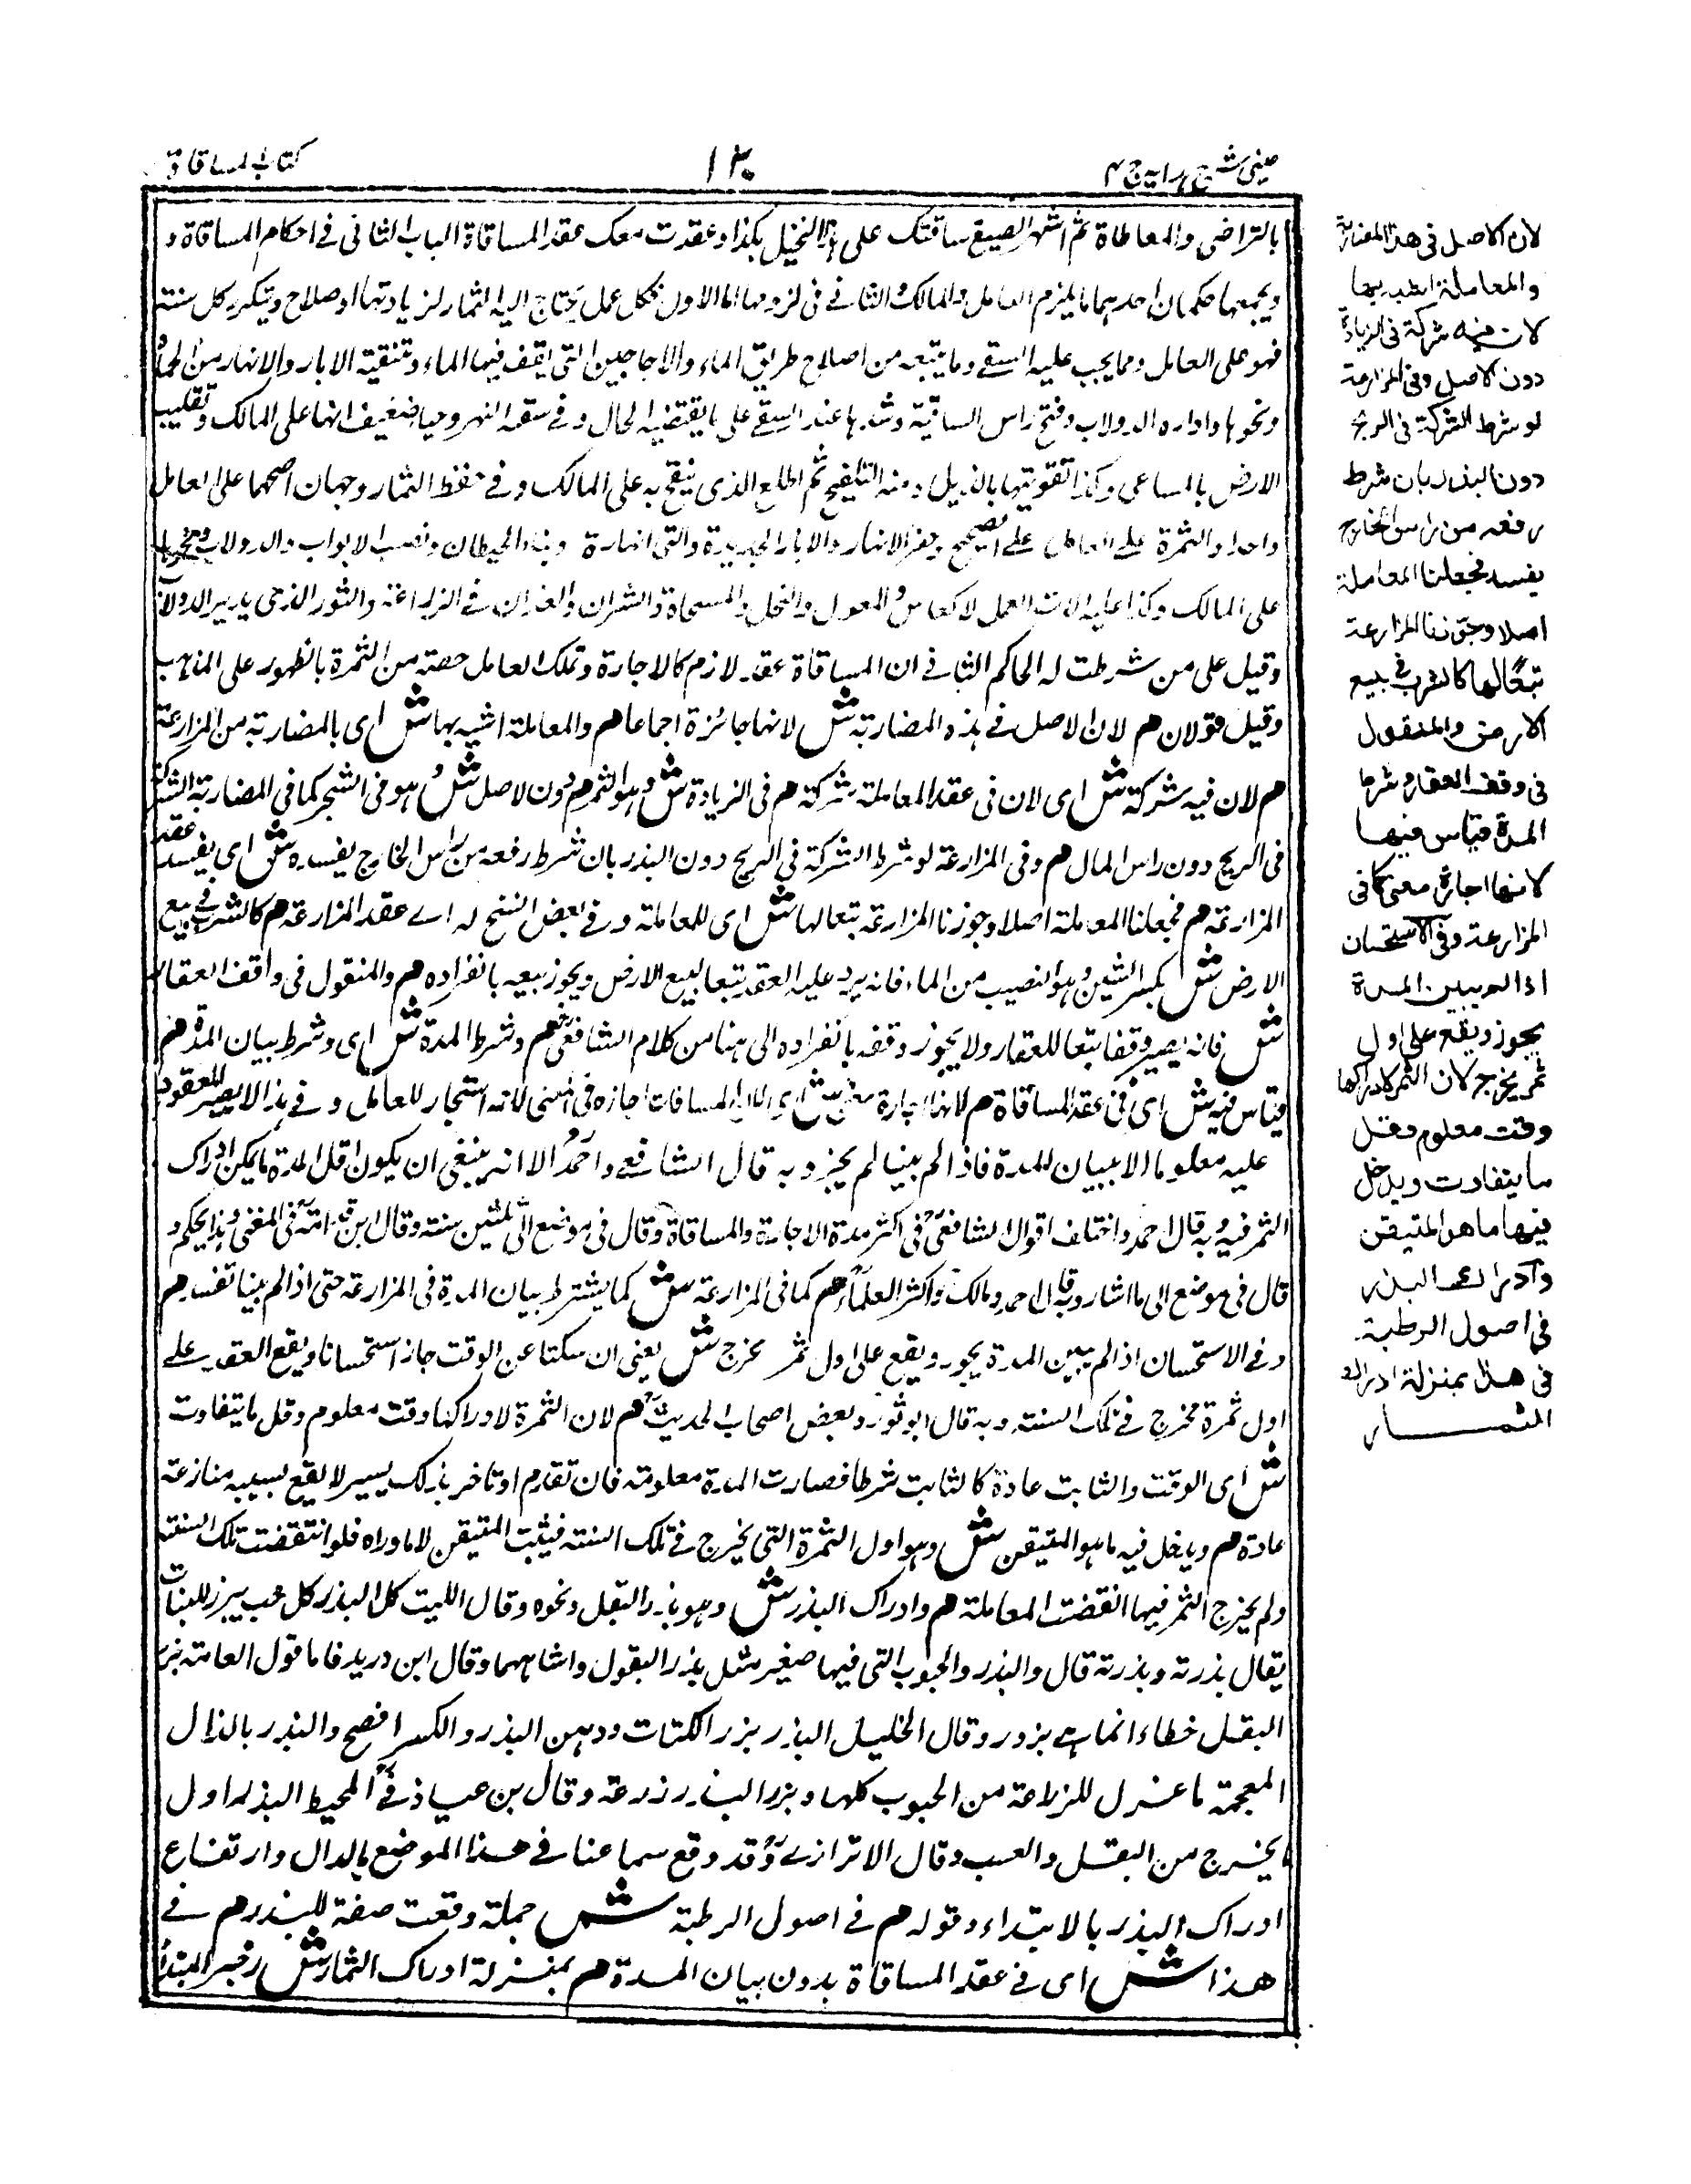 عینی شرح ہدایہ ج ۴
۱۳۰
کتاب المساقاة
بالتراضی والمعاطاة ثم اشہر الصیغ ساقتک علی ہذا النخیل بکذا وعقدت معک عقد المساقاة الباب الثانی فی احکام المساقاة و
ویجمعہا حکمان احدہما ما یلزم العامل والمالک والثانی فی لزومہا اما الاول فکل عمل یحتاج الیہ الثمار لزیادتہا او صلاح ویتکرر کل سنة
فہو علی العامل ومما یجب علیہ السقی وما یتبعہ من اصلاح طریق الماء والاجاجین التی یقف فیہا الماء وتنقیة الابار والانہار من الحمأة
ونحوہا وادارہ الدولاب وفتح راس الساقیة وشدہا عند السقی علی ما یقتضیہ الحال وفی سقیہ النہر وجہا ضعیف انہا علی المالک وتقلیب
الارض بالمساحی وکذا تقویتہا بالزبل ومنہ التلقیح ثم الطلع الذی یلقح بہ علی المالک وفی حفظ الثمار وجہان اصحہما علی العامل
واحداد الثمرة علی العامل علی الصحیح وحفر الانہار والابار الجدیدة والتی انہارة وبناء الحیطان ونصب الابواب والدولاب ونحوہا
علی المالک وکذا علیہ الات العمل کالفاس والمعول والمنجل والمسحاة والثیران والفدان فی الزراعة والثور الذی یدیر الدولاب
وقیل علی من شرطت لہ الحاکم الثانی ان المساقاة عقد لازم کالاجارة وتملک العامل حصتہ من الثمرة بالظہور علی المذہب
وقیل قولان م لان الاصل فی ہذہ المضاربة ش لانہا جائزة اجماعا م والمعاملة اشبہ بہا ش ای بالمضاربة من المزارعة
م لان فیہ شرکة ش ای لان فی عقد المعاملة شرکة م فی الزیادة ش وہو الثمر م دون الاصل ش وہو فی الشجر کما فی المضاربة الشرکة
فی الربح دون راس المال م وفی المزارعة لو شرط الشرکة فی الربح دون البذر بان شرط رفعہ من راس الخارج یفسدہ ش ای یفسد عقد
المزارعة م فجعلنا المعاملة اصلا وجوزنا المزارعة تبعا لہا ش ای للمعاملة وفی بعض النسخ لہ ای عقد المزارعة م کالشرب فی بیع
الارض ش بکسر الشین وہو النصیب من الماء فانہ یرد علیہ العقد تبعا لبیع الارض ویجوز بیعہ بانفرادہ م والمنقول فی وقف العقار
ش فانہ یصیر وقفا تبعا للعقار ولا یجوز وقفہ بانفرادہ الی ہنا من کلام الشافعی م وشرط المدة ش ای وشرط بیان المدة م
قیاس فیہ ش ای فی عقد المساقاة م لانہا اجارة معنی ش ای لان المساقات اجازة فی المعنی لانہ استیجار للعامل وفی ہذا لا یصیر المعقود
علیہ معلوما الا ببیان المدة فاذا لم یبینا لم یجز وبہ قال الشافعی واحمد الا انہ ینبغی ان یکون اقل المدة ما یمکن ادراک
الثمر فیہ وبہ قال احمد واختلف اقوال الشافعی فی اکثر مدة الاجارة والمساقاة وقال فی موضع الی ثلثین سنة وقال ابن قدامة فی المغنی وہذا یحکم و
قال فی موضع الی ما اشار وبہ قال احمد ومالک واکثر العلماء م کما فی المزارعة ش کما یشترط بیان المدة فی المزارعة حتی اذا لم یبینا تفسد م
وفی الاستحسان اذا لم یبین المدة یجوز ویقع علی اول ثمر یخرج ش یعنی ان سکتا عن الوقت جاز استحسانا ویقع العقد علی
اول ثمرة تخرج فی تلک السنة وبہ قال ابو ثور وبعض اصحاب الحدیث م لان الثمرة لادراکہا وقت معلوم وقل ما یتفاوت
ش ای الوقت والثابت عادة کالثابت شرطا فصارت المدة معلومة فان تقدم او تاخر فذلک یسیر لا یقع بسببہ منازعة
عادة م ویدخل فیہ ما ہو المتیقن ش وہو اول الثمرة التی یخرج فی تلک السنة فیثبت المتیقن لا ماوراہ فلو انقضت تلک السنة
ولم یخرج الثمر فیہا انقضت المعاملة م وادراک البذر ش وہو بذر البقل ونحوہ وقال اللیث کل البذر کل حب یبزر للنبات
یقال بذرتہ وبذرتہ قال والبذر والحبوب التی فیہا صغیر مثل بذر البقول واشباہہا وقال ابن درید فاما قول العامة بزر
البقل خطاء انما ہی بزور وقال الخلیل البذر بزر الکتات ودہن البذر والکسر افصح والبذر بالذال
المعجمة ما عزل للزراعة من الحبوب کلہا وبزر البذر زرعہ وقال بن عباد فی المحیط البذر اول
ما یخرج من البقل والعسب وقال الاترازی وقد وقع سماعنا فی ہذا الموضع بالدال وارتفاع
ادراک البذر بالابتداء وقولہ م فی اصول الرطبة ش جملة وقعت صفة للبذر م فی
ہذا ش ای فی عقد المساقاة بدون بیان المدة م بمنزلة ادراک الثمار ش خبر المبتدأ
لان الاصل فی ہذا المضاربة
والمعاملة اشبہ بہا
لان فیہ شرکة فی الزیادة
دون الاصل وفی المزارعة
لو شرط الشرکة فی الربح
دون البذر بان شرط
رفعہ من راس الخارج
یفسد فجعلنا المعاملة
اصلا وجوزنا المزارعة
تبعًا لہا کالشرب فی بیع
الارض والمنقول
فی وقف العقار وشرط
المدة قیاس فیہا
لانہا اجارة معنی کما فی
المزارعة وفی الاستحسان
اذا لم یبین المدة
یجوز ویقع علی اول
ثمر یخرج لان الثمر لادراکہا
وقت معلوم وقل
ما یتفاوت ویدخل
فیہا ما ہو المتیقن
وادراک البذر
فی اصول الرطبة
فی ہذا بمنزلة ادراک
الثمار